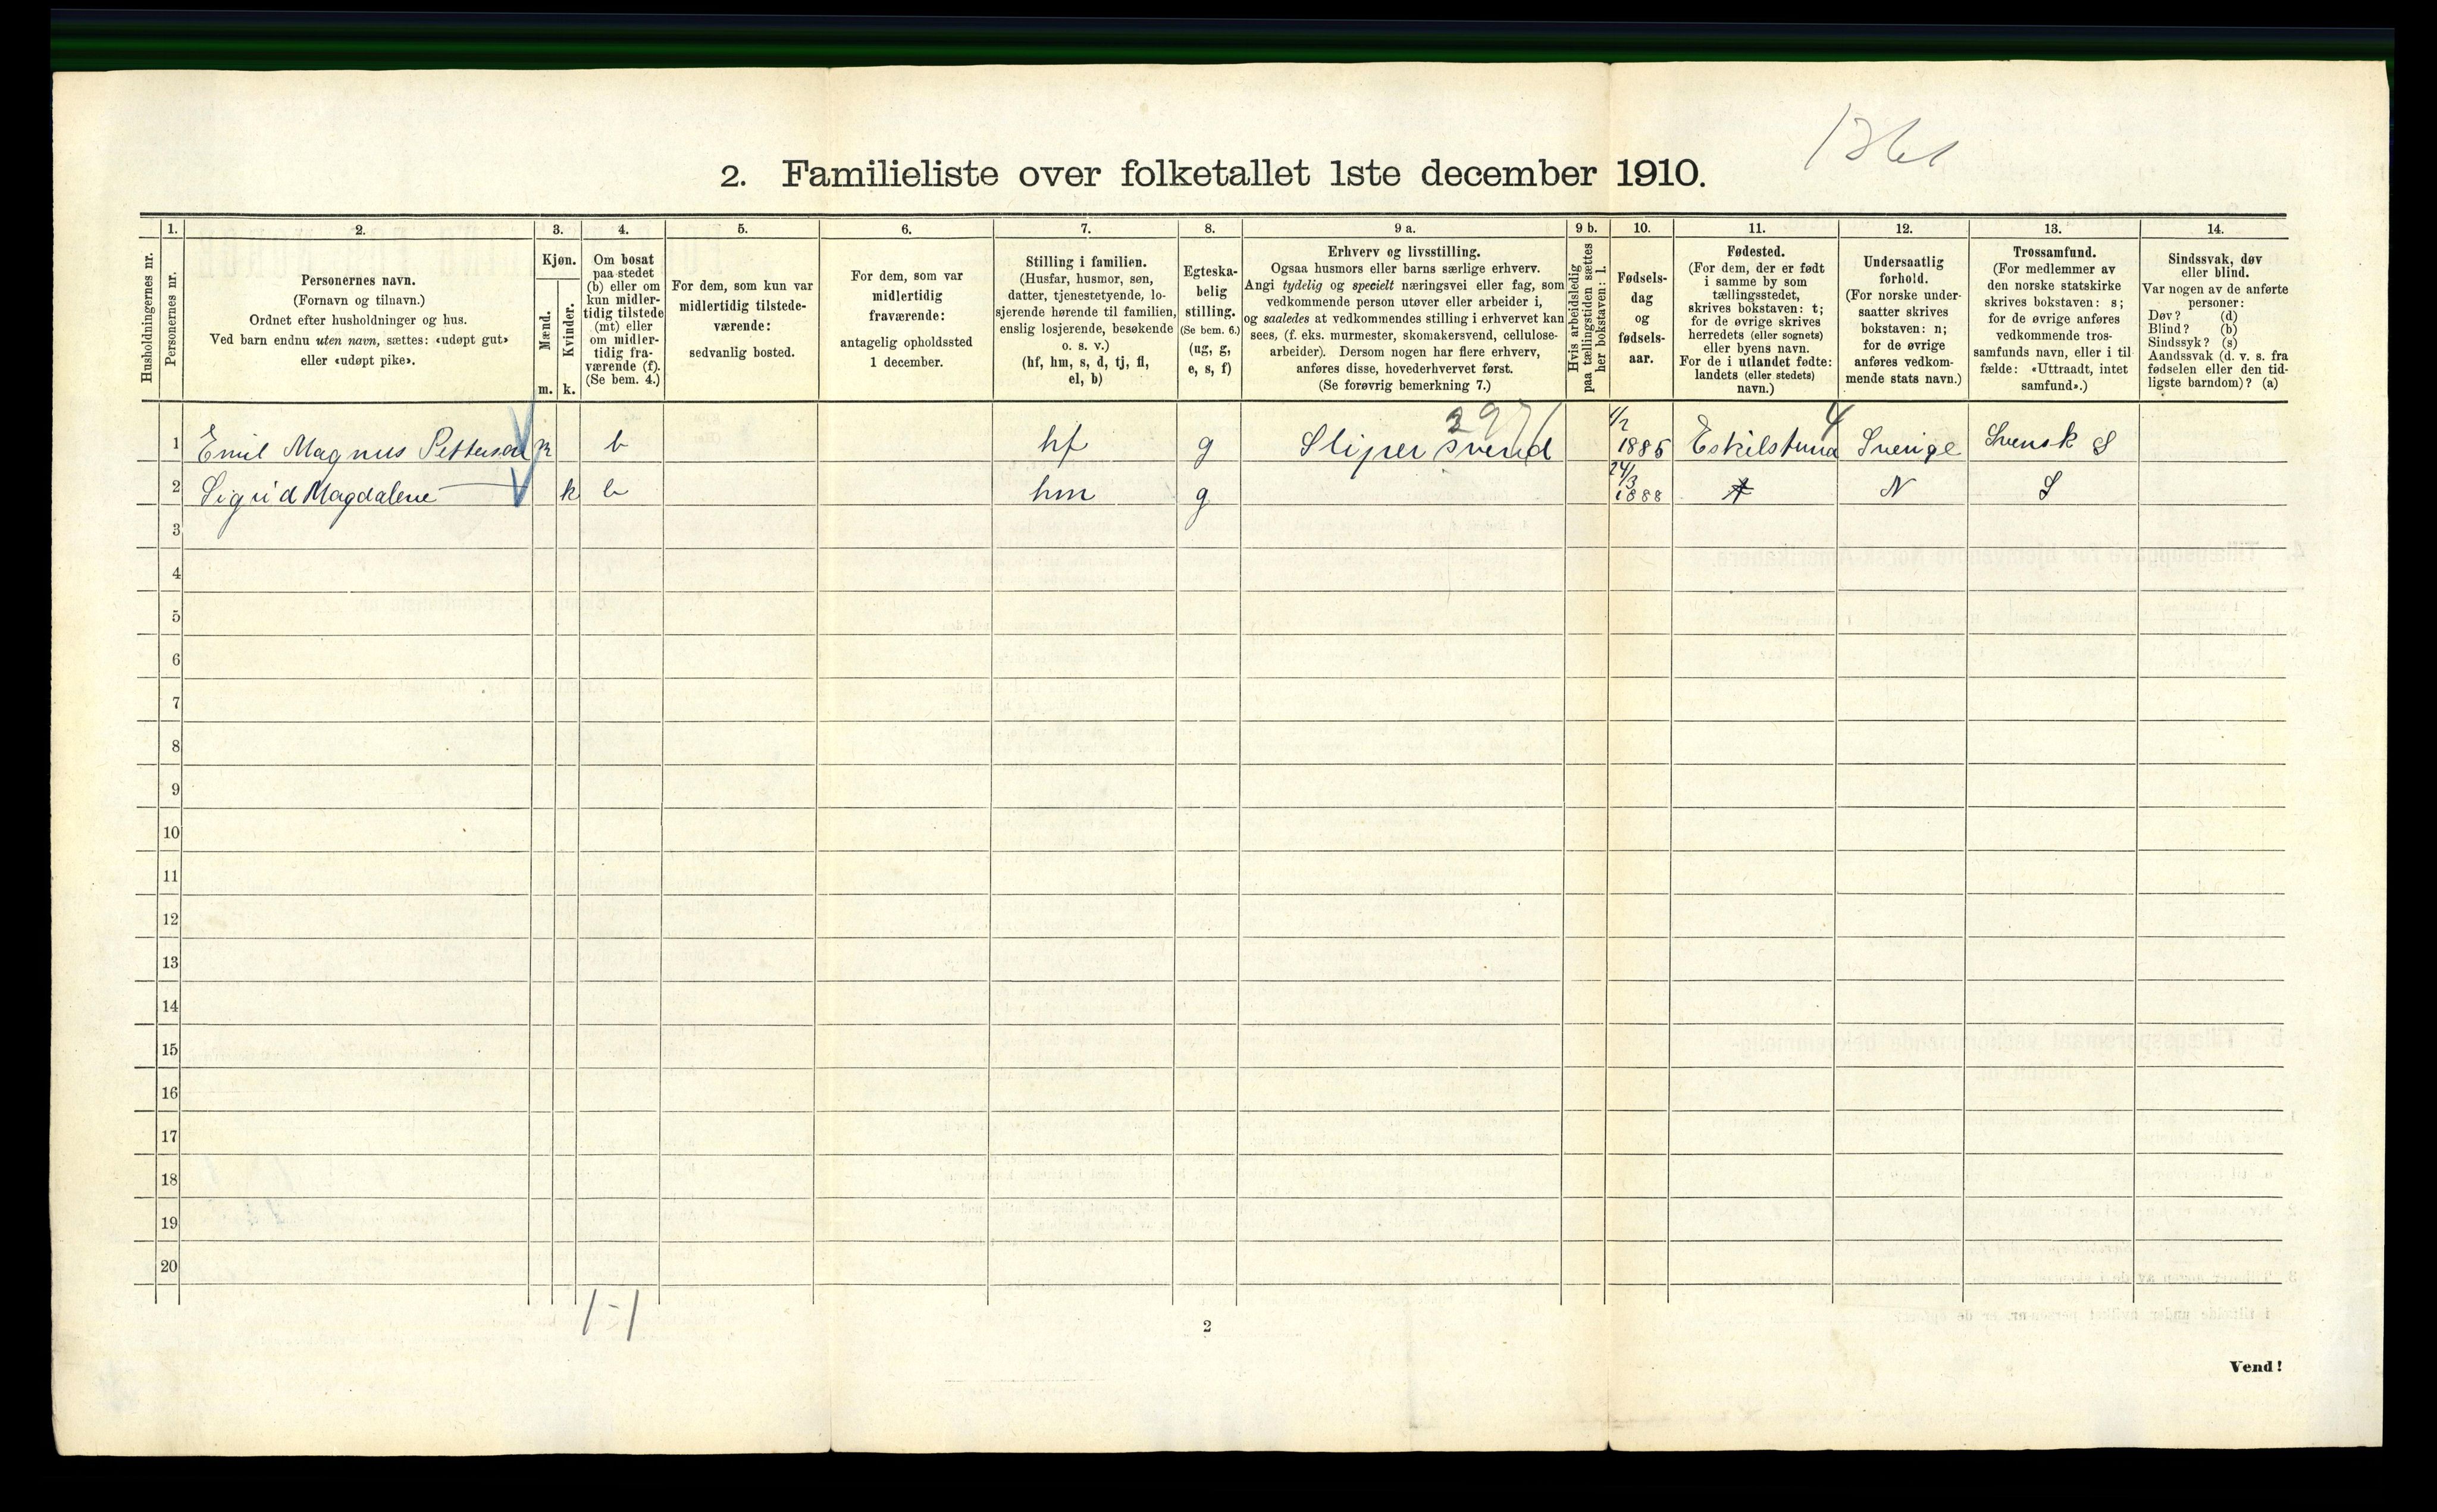 2. Familieliste over folketallet 1ste december 1910.
Husholdningernes nr.
1.
Personernes nr.
2.
Personernes navn.
(Fornavn og tilnavn.)
Ordnet efter husholdninger og hus.
Ved barn endnu uten navn, sættes: «udøpt gut»
eller «udøpt pike».
3.
Kjøn.
Mænd.
m.
Kvinder.
k.
4.
Om bosat
paa stedet
(b) eller om
kun midler-
tidig tilstede
(mt) eller
om midler-
tidig fra-
værende (f).
(Se bem. 4.)
5.
For dem, som kun var
midlertidig tilstede-
værende:
sedvanlig bosted.
6.
For dem, som var
midlertidig
fraværende:
antagelig opholdssted
1 december.
7.
Stilling i familien.
(Husfar, husmor, søn,
datter, tjenestetyende, lo-
sjerende hørende til familien,
enslig losjerende, besøkende
o. s. v.)
(hf, hm, s, d, tj, fl,
el, b)
8.
Egteska-
belig
stilling.
(Se bem. 6.)
(ug, g,
e, s, f)
9 a.
Erhverv og livsstilling.
Ogsaa husmors eller barns særlige erhverv.
Angi tydelig og specielt næringsvei eller fag, som
vedkommende person utøver eller arbeider i,
og saaledes at vedkommendes stilling i erhvervet kan
sees, (f. eks. murmester, skomakersvend, cellulose-
arbeider). Dersom nogen har flere erhverv,
anføres disse, hovederhvervet først.
(Se forøvrig bemerkning 7.)
9 b.
Hvis arbeidsledig
paa tællingstiden sættes
her bokstaven: l.
10.
Fødsels-
dag
og
fødsels-
aar.
11.
Fødested.
(For dem, der er født
i samme by som
tællingsstedet,
skrives bokstaven: t;
for de øvrige skrives
herredets (eller sognets)
eller byens navn.
For de i utlandet fødte:
landets (eller stedets)
navn.)
12.
Undersaatlig
forhold.
(For norske under-
saatter skrives
bokstaven: n;
for de øvrige
anføres vedkom-
mende stats navn.)
13.
Trossamfund.
(For medlemmer av
den norske statskirke
skrives bokstaven: s;
for de øvrige anføres
vedkommende tros-
samfunds navn, eller i til-
fælde: «Uttraadt, intet
samfund».)
14.
Sindssvak, døv
eller blind.
Var nogen av de anførte
personer:
Døv? (d)
Blind? (b)
Sindssyk? (s)
Aandssvak (d. v. s. fra
fødselen eller den tid-
ligste barndom)? (a)
1 Emil Magnus Petterson b hf g Sliper svend 1/2 1886 Eskilstuna 4 Sverige Svensk S
2 Sigrid Magdalene k b hm g 24/3 1888 t N S
3
4
5
6
7
8
9
10
11
12
13
14
15
16
17
18
19
20
1-1
2
Vend!